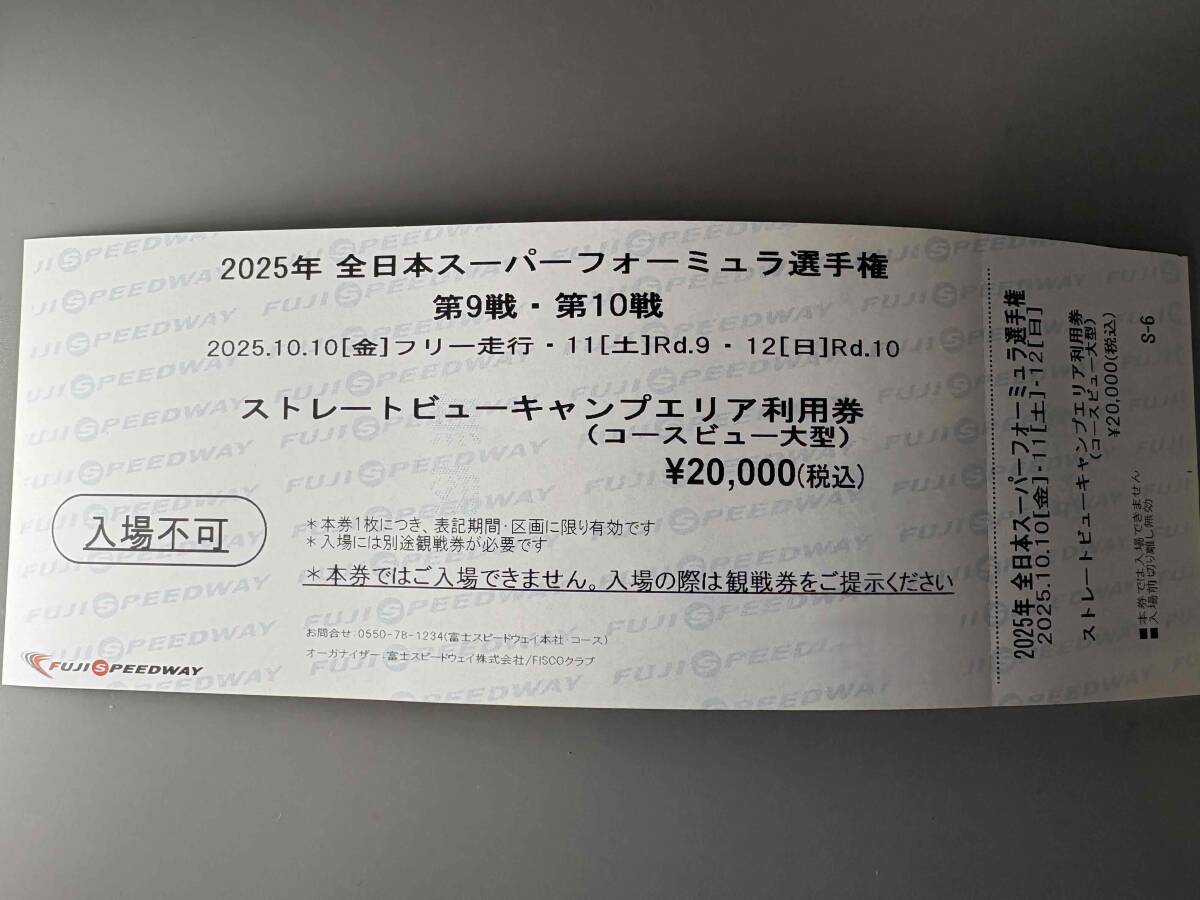 2025年 全日本スーパーフォーミュラ選手権
第9戦・第10戦
2025.10.10[金]フリー走行・11[土]Rd.9・12[日]Rd.10
ストレートビューキャンプエリア利用券
(コースビュー大型)
¥20,000(税込)
入場不可
*本券1枚につき、表記期間・区画に限り有効です
*入場には別途観戦券が必要です
*本券ではご入場できません。入場の際は観戦券をご提示ください
お問合せ:0550-78-1234(富士スピードウェイ本社・コース)
オーガナイザー:富士スピードウェイ株式会社/FISCOクラブ
FUJI SPEEDWAY
2025年 全日本スーパーフォーミュラ選手権
2025.10.10[金]-11[土]-12[日]
ストレートビューキャンプエリア利用券
(コースビュー大型)
¥20,000(税込)
S-6
■本券では入場できません
■入場前切り離し無効